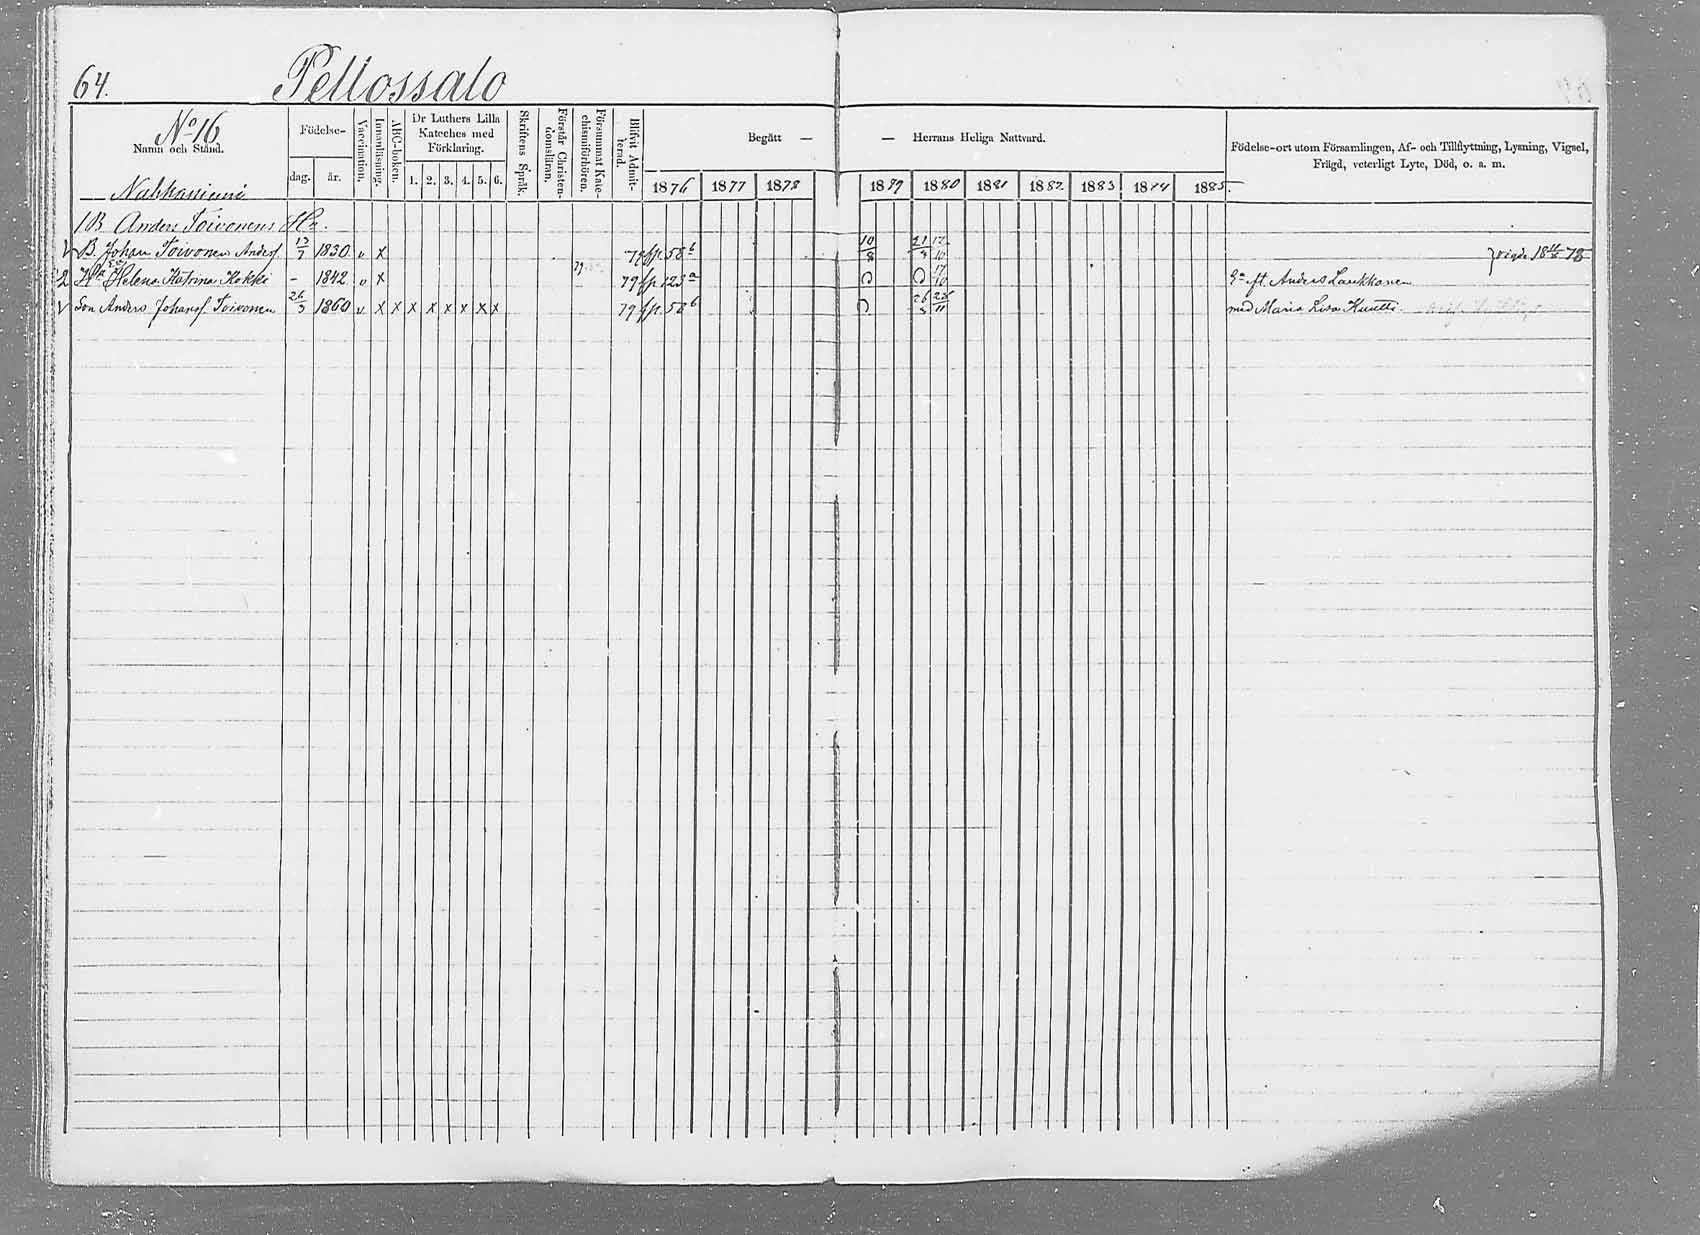 64. Pellossalo
No 16
Namn och Stånd.
Födelse-
dag. år.
Vaccination.
Innanläsning.
ABC-boken.
Dr Luthers Lilla Kateches med Förklaring.
1. 2. 3. 4. 5. 6.
Skriftens Språk.
Förstår Christendomsläran.
Försummat Katechismiförhören.
Blifvit Admitterad.
Begått — — Herrans Heliga Nattvard.
1876 1877 1878 1879 1880 1881 1882 1883 1884 1885
Födelse-ort utom Församlingen, Af- och Tillflyttning, Lysning, Vigsel,
Frägd, veterligt Lyte, Död, o. a. m.
Nahkaniemi
1 B Anders Toivonens
B. Johan Toivonen Andersf. 13/7 1830 v x 79 fp. 58 b 10/8 vigde 18 78
Helena Katrina Kokki - 1842 v x 79 fp. 123 a Ea ft. Anders Laukkanen
Son Anders Johansf. Toivonen 26/3 1860 v x x x x x x x x 79 fp. 58 b med Maria Lisa Kuutti.